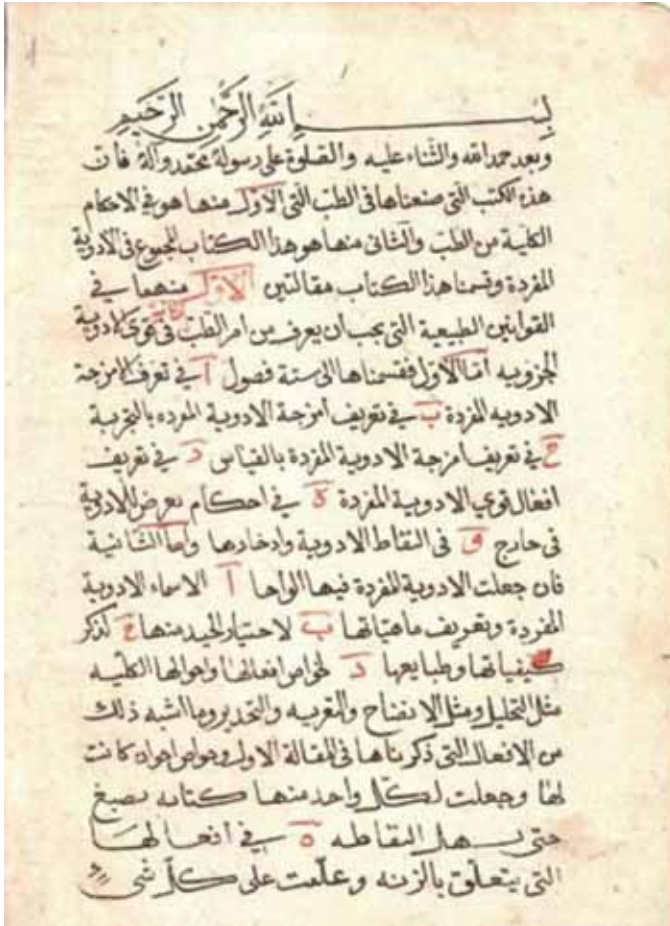 بسم الله الرحمن الرحيم
وبعد حمد الله والثناء عليه والصلوة على رسوله محمد وآله فان
هذه الكتب التى صنعناها فى الطب التى الاول منها هو فى الاحكام
الكلية من الطب والثانى منها هو هذا الكتاب المجموع فى الادوية
المفردة وقسمنا هذا الكتاب مقالتين الاول منهما فى
القوانين الطبيعية التى يجب ان يعرف من امر الطب فى قوى الادوية
الجزويه اما الاول فقسمناها الى ستة فصول آ فى تعرف الامزجة
الادويه المفردة ب فى تعريف امزجة الادوية المرده بالتجربة
ج فى تعريف امزجة الادوية المفردة بالقياس د فى تعريف
افعال قوي الادوية المفردة ه فى احكام يعرض للادوية
فى خارج و فى التقاط الادوية وادخارها واما الثانية
فان جعلت الادوية المفردة فيها الواحا آ الاسماء الادوية
المفردة وتعريف ماهياتها ب لاختيار الجيد منها ج لذكر
كيفياتها وطبايعها د لخواص افعالها واحوالها الكليه
مثل التحليل ومثل الانضاح والتغريه والتخدير وما اشبه ذلك
من الافعال التى ذكرناها فى المقالة الاول وخواص اخران كانت
لها وجعلت لكل واحد منها كتابه بصبغ
حتى يسهل التقاطه ه فى افعالها
التى يتعلق بالزينه وعلمت على كل شى